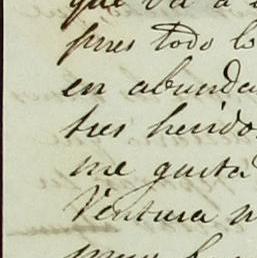 que va a
pues todo lo
en abunda
tres heridos
me gusta
Ventura